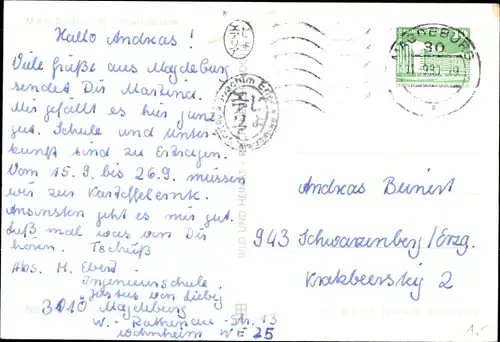 Hallo Andreas!
Viele Grüße aus Magdeburg
sendet Dir Martina.
Mir gefällt es hier ganz
gut. Schule und Unter-
kunft sind zu Ertragen.
Vom 15.9. bis 26.9. müssen
wir zur Kartoffelernte.
Ansonsten geht es mir gut.
Laß mal was von Dir
hören. Tschüß
Abs. M. Ebert
Ingenieurschule
"Justus von Liebig
3010 Magdeburg
W.-Rathenau-Str. 13
Wohnheim WE 25
MAGDEBURG
30
BILD UND HEIMAT
Andreas Beinert
943 Schwarzenberg/Erzg.
Krakbeersteig 2
1,-